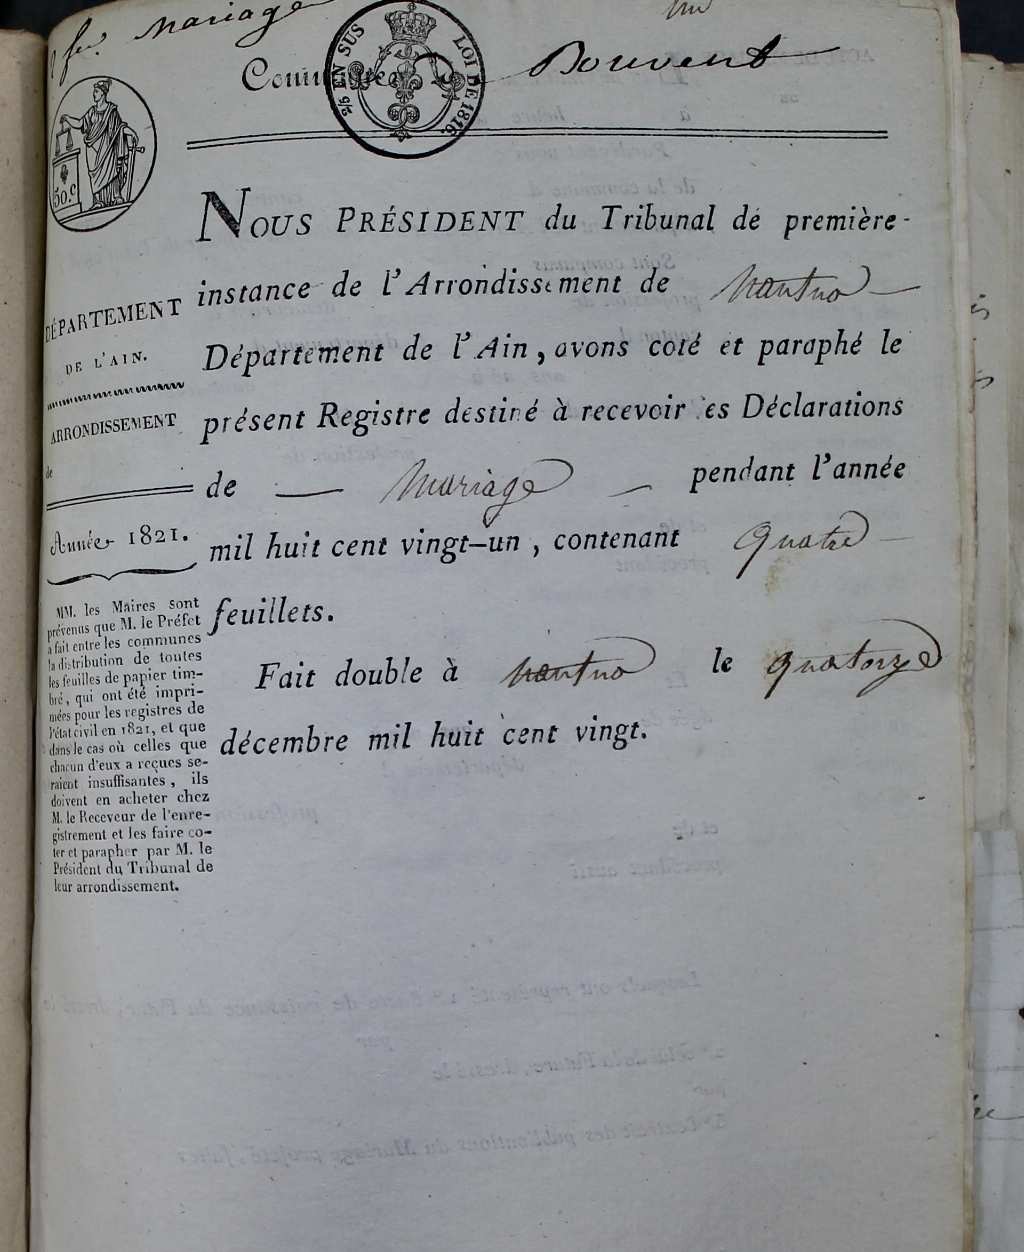 mariage
Commune de Bouvent
2/5 EN SUS LOI DE 1816
50.c
NOUS PRÉSIDENT du Tribunal de première-
instance de l'Arrondissement de Nantua
Département de l'Ain, avons coté et paraphé le
présent Registre destiné à recevoir les Déclarations
de Mariage pendant l'année
mil huit cent vingt-un, contenant quatre
feuillets.
Fait double à Nantua le quatorze
décembre mil huit cent vingt.
DÉPARTEMENT
DE L'AIN.
ARRONDISSEMENT
de
Année 1821.
MM. les Maires sont
prévenus que M. le Préfet
a fait entre les communes
la distribution de toutes
les feuilles de papier tim-
bré, qui ont été impri-
mées pour les registres de
l'état civil en 1821, et que
dans le cas où celles que
chacun d'eux a reçues se-
raient insuffisantes, ils
doivent en acheter chez
M. le Receveur de l'enre-
gistrement et les faire co-
ter et parapher par M. le
Président du Tribunal de
leur arrondissement.